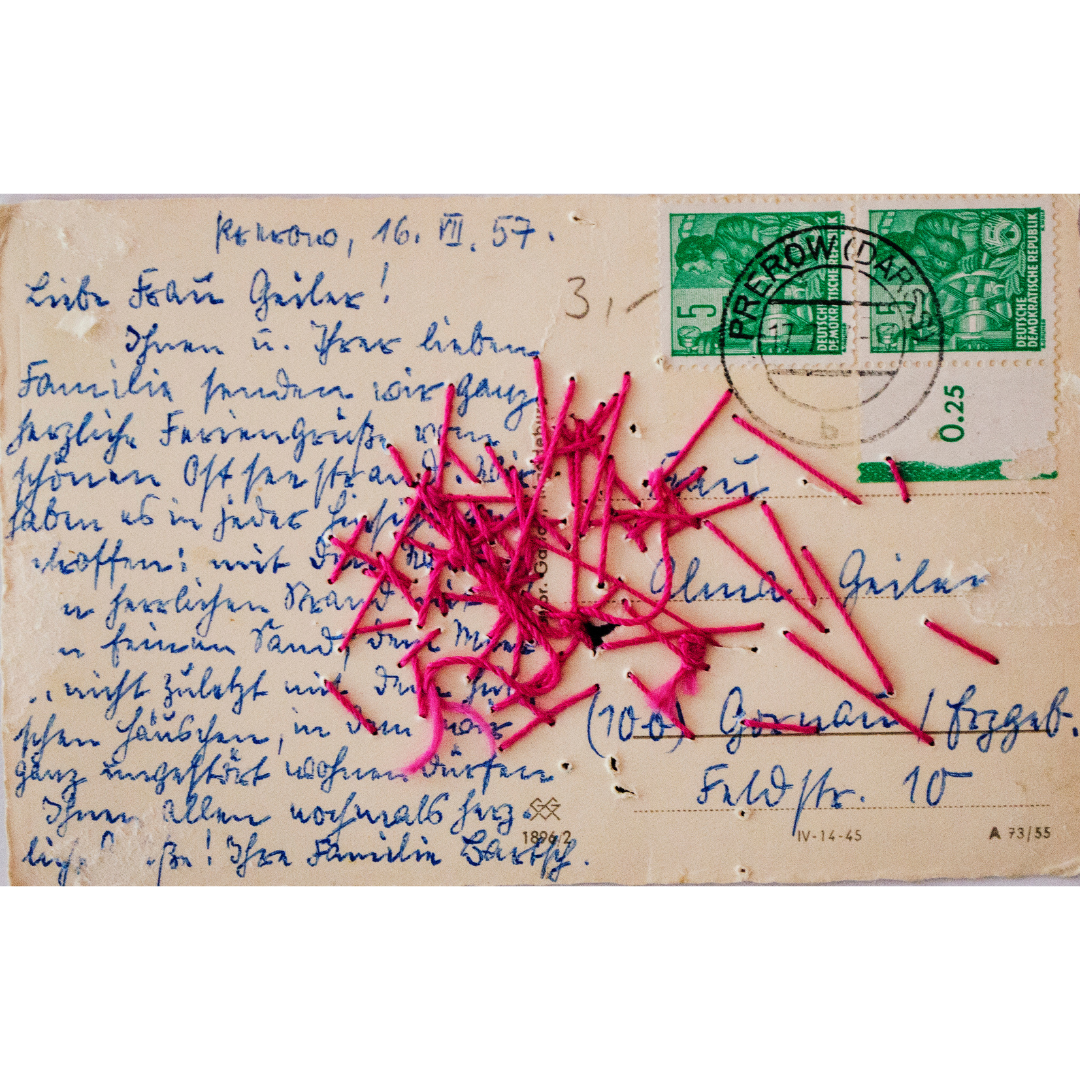 Prerow, 16. VII. 57.
Liebe Frau Geiler!
Ihnen u. Ihrer lieben
Familie senden wir ganz
herzliche Feriengrüße vom
schönen Ostseestrand. Wir
haben es in jeder Hinsicht
troffen: mit dem
n herrlichen Strand
n feinen Sand, dem Meer
nicht zuletzt mit dem
schen Häuschen, in dem wir
ganz ungestört wohnen dürfen
Ihnen allen nochmals herz-
liche ße! Ihre Familie Bartsch.
3,-
5
DEUTSCHE
DEMOKRATISCHE REPUBLIK
5
DEUTSCHE
DEMOKRATISCHE REPUBLIK
PREROW (DARSS)
17.7
b
0.25
Frau
Alma Geiler
(10b) Gornau / Erzgeb.
Feldstr. 10
1896/2
IV-14-45
A 73/55